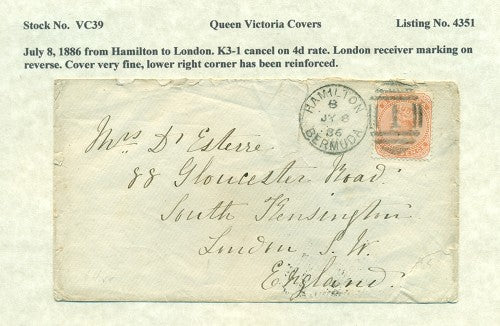 Stock No. VC39 Queen Victoria Covers Listing No. 4351
July 8, 1886 from Hamilton to London. K3-1 cancel on 4d rate. London receiver marking on
reverse. Cover very fine, lower right corner has been reinforced.
HAMILTON
B
JY 8
86
BERMUDA
1
Mrs D'Esterre
88 Gloucester Road
South Kensington
London. S. W.
England.